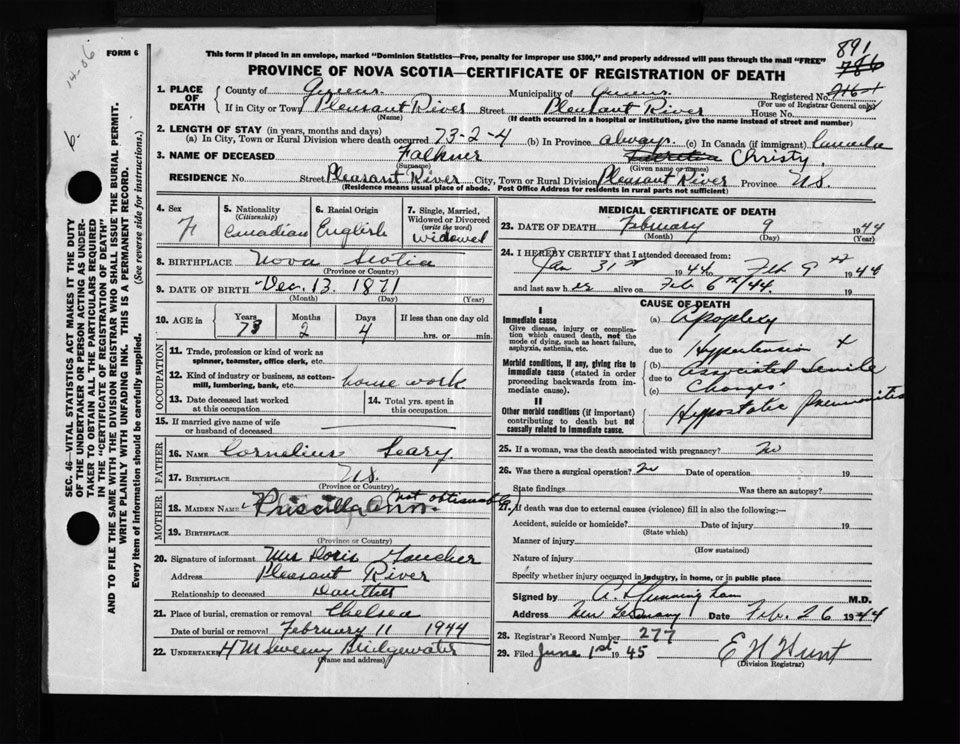 14-06
6.
FORM 6
This form if placed in an envelope, marked "Dominion Statistics—Free, penalty for improper use $300," and properly addressed will pass through the mail "FREE"
891
786
PROVINCE OF NOVA SCOTIA—CERTIFICATE OF REGISTRATION OF DEATH
1. PLACE OF DEATH County of Queens Municipality of Queens Registered No.
(For use of Registrar General only)
If in City or Town Pleasant River Street Pleasant River House No.
(Name) (If death occurred in a hospital or institution, give the name instead of street and number)
2. LENGTH OF STAY (in years, months and days)
(a) In City, Town or Rural Division where death occurred 73-2-4 (b) In Province always (c) In Canada (if immigrant) Canada
3. NAME OF DECEASED Falkner Christy
(Surname) (Given name or names)
RESIDENCE No. Street Pleasant River City, Town or Rural Division Pleasant River Province N.S.
(Residence means usual place of abode. Post Office Address for residents in rural parts not sufficient)
SEC. 46—VITAL STATISTICS ACT MAKES IT THE DUTY
OF THE UNDERTAKER OR PERSON ACTING AS UNDER-
TAKER TO OBTAIN ALL THE PARTICULARS REQUIRED
IN THE "CERTIFICATE OF REGISTRATION OF DEATH"
AND TO FILE THE SAME WITH THE DIVISION REGISTRAR WHO SHALL ISSUE THE BURIAL PERMIT.
WRITE PLAINLY WITH UNFADING INK. THIS IS A PERMANENT RECORD.
Every item of information should be carefully supplied. (See reverse side for instructions.)
4. Sex F
5. Nationality (Citizenship) Canadian
6. Racial Origin English
7. Single, Married, Widowed or Divorced (write the word) widowed
8. BIRTHPLACE Nova Scotia
(Province or Country)
9. DATE OF BIRTH Dec. 13 1871
(Month) (Day) (Year)
10. AGE in Years 73 Months 2 Days 4 If less than one day old hrs. or min.
OCCUPATION
11. Trade, profession or kind of work as spinner, teamster, office clerk, etc.
12. Kind of industry or business, as cotton-mill, lumbering, bank, etc. house work
13. Date deceased last worked at this occupation
14. Total yrs. spent in this occupation
15. If married give name of wife or husband of deceased
FATHER
16. NAME Cornelius Seary
17. BIRTHPLACE N.S.
(Province or Country)
MOTHER
18. MAIDEN NAME Priscilla Ann (not obtainable)
19. BIRTHPLACE
(Province or Country)
20. Signature of informant Mrs Doris Faucher
Address Pleasant River
Relationship to deceased Douther
21. Place of burial, cremation or removal Chelsea
Date of burial or removal February 11 1944
22. UNDERTAKER H M Sweeny Bridgewater
(Name and address)
MEDICAL CERTIFICATE OF DEATH
23. DATE OF DEATH February 9 1944
(Month) (Day) (Year)
24. I HEREBY CERTIFY that I attended deceased from:
Jan 31st 1944 to Feb 9th 1944
and last saw her alive on Feb 6th/44. 19
CAUSE OF DEATH
I
Immediate cause (a) Apoplexy
Give disease, injury or complication which caused death, not the mode of dying, such as heart failure, asphyxia, asthenia, etc.
due to Hypertension +
Morbid conditions, if any, giving rise to immediate cause (stated in order proceeding backwards from immediate cause).
(b) associated senile
due to
(c) changes.
II
Other morbid conditions (if important) contributing to death but not causally related to immediate cause.
Hypostatic Pneumonitis
25. If a woman, was the death associated with pregnancy? no
26. Was there a surgical operation? no Date of operation 19
State findings Was there an autopsy?
27. If death was due to external causes (violence) fill in also the following:—
Accident, suicide or homicide? Date of injury 19
(State which)
Manner of injury
(How sustained)
Nature of injury
Specify whether injury occurred in industry, in home, or in public place
Signed by A. Cunningham M.D.
Address New Germany Date Feb. 26 1944
28. Registrar's Record Number 277
29. Filed June 1st 1945 E H Hunt
(Division Registrar)